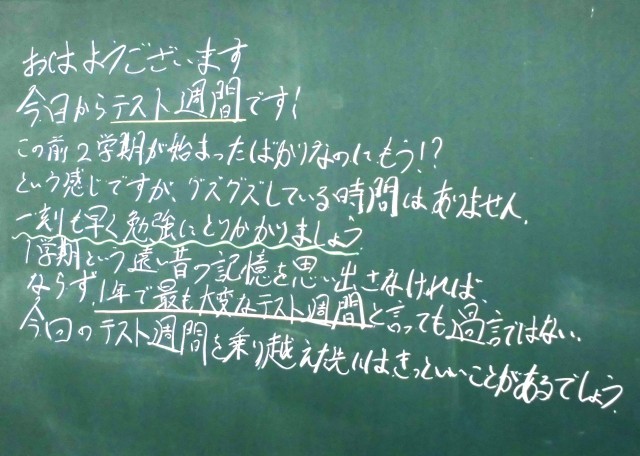 おはようございます
今日からテスト週間です!
この前2学期が始まったばかりなのにもう!?
という感じですが、グズグズしている時間はありません。
一刻も早く勉強にとりかかりましょう。
1学期という遠い昔の記憶を思い出さなければ
ならず、1年で最も大変なテスト週間と言っても過言ではない。
今回のテスト週間を乗り越えた先にはきっといいことがあるでしょう。